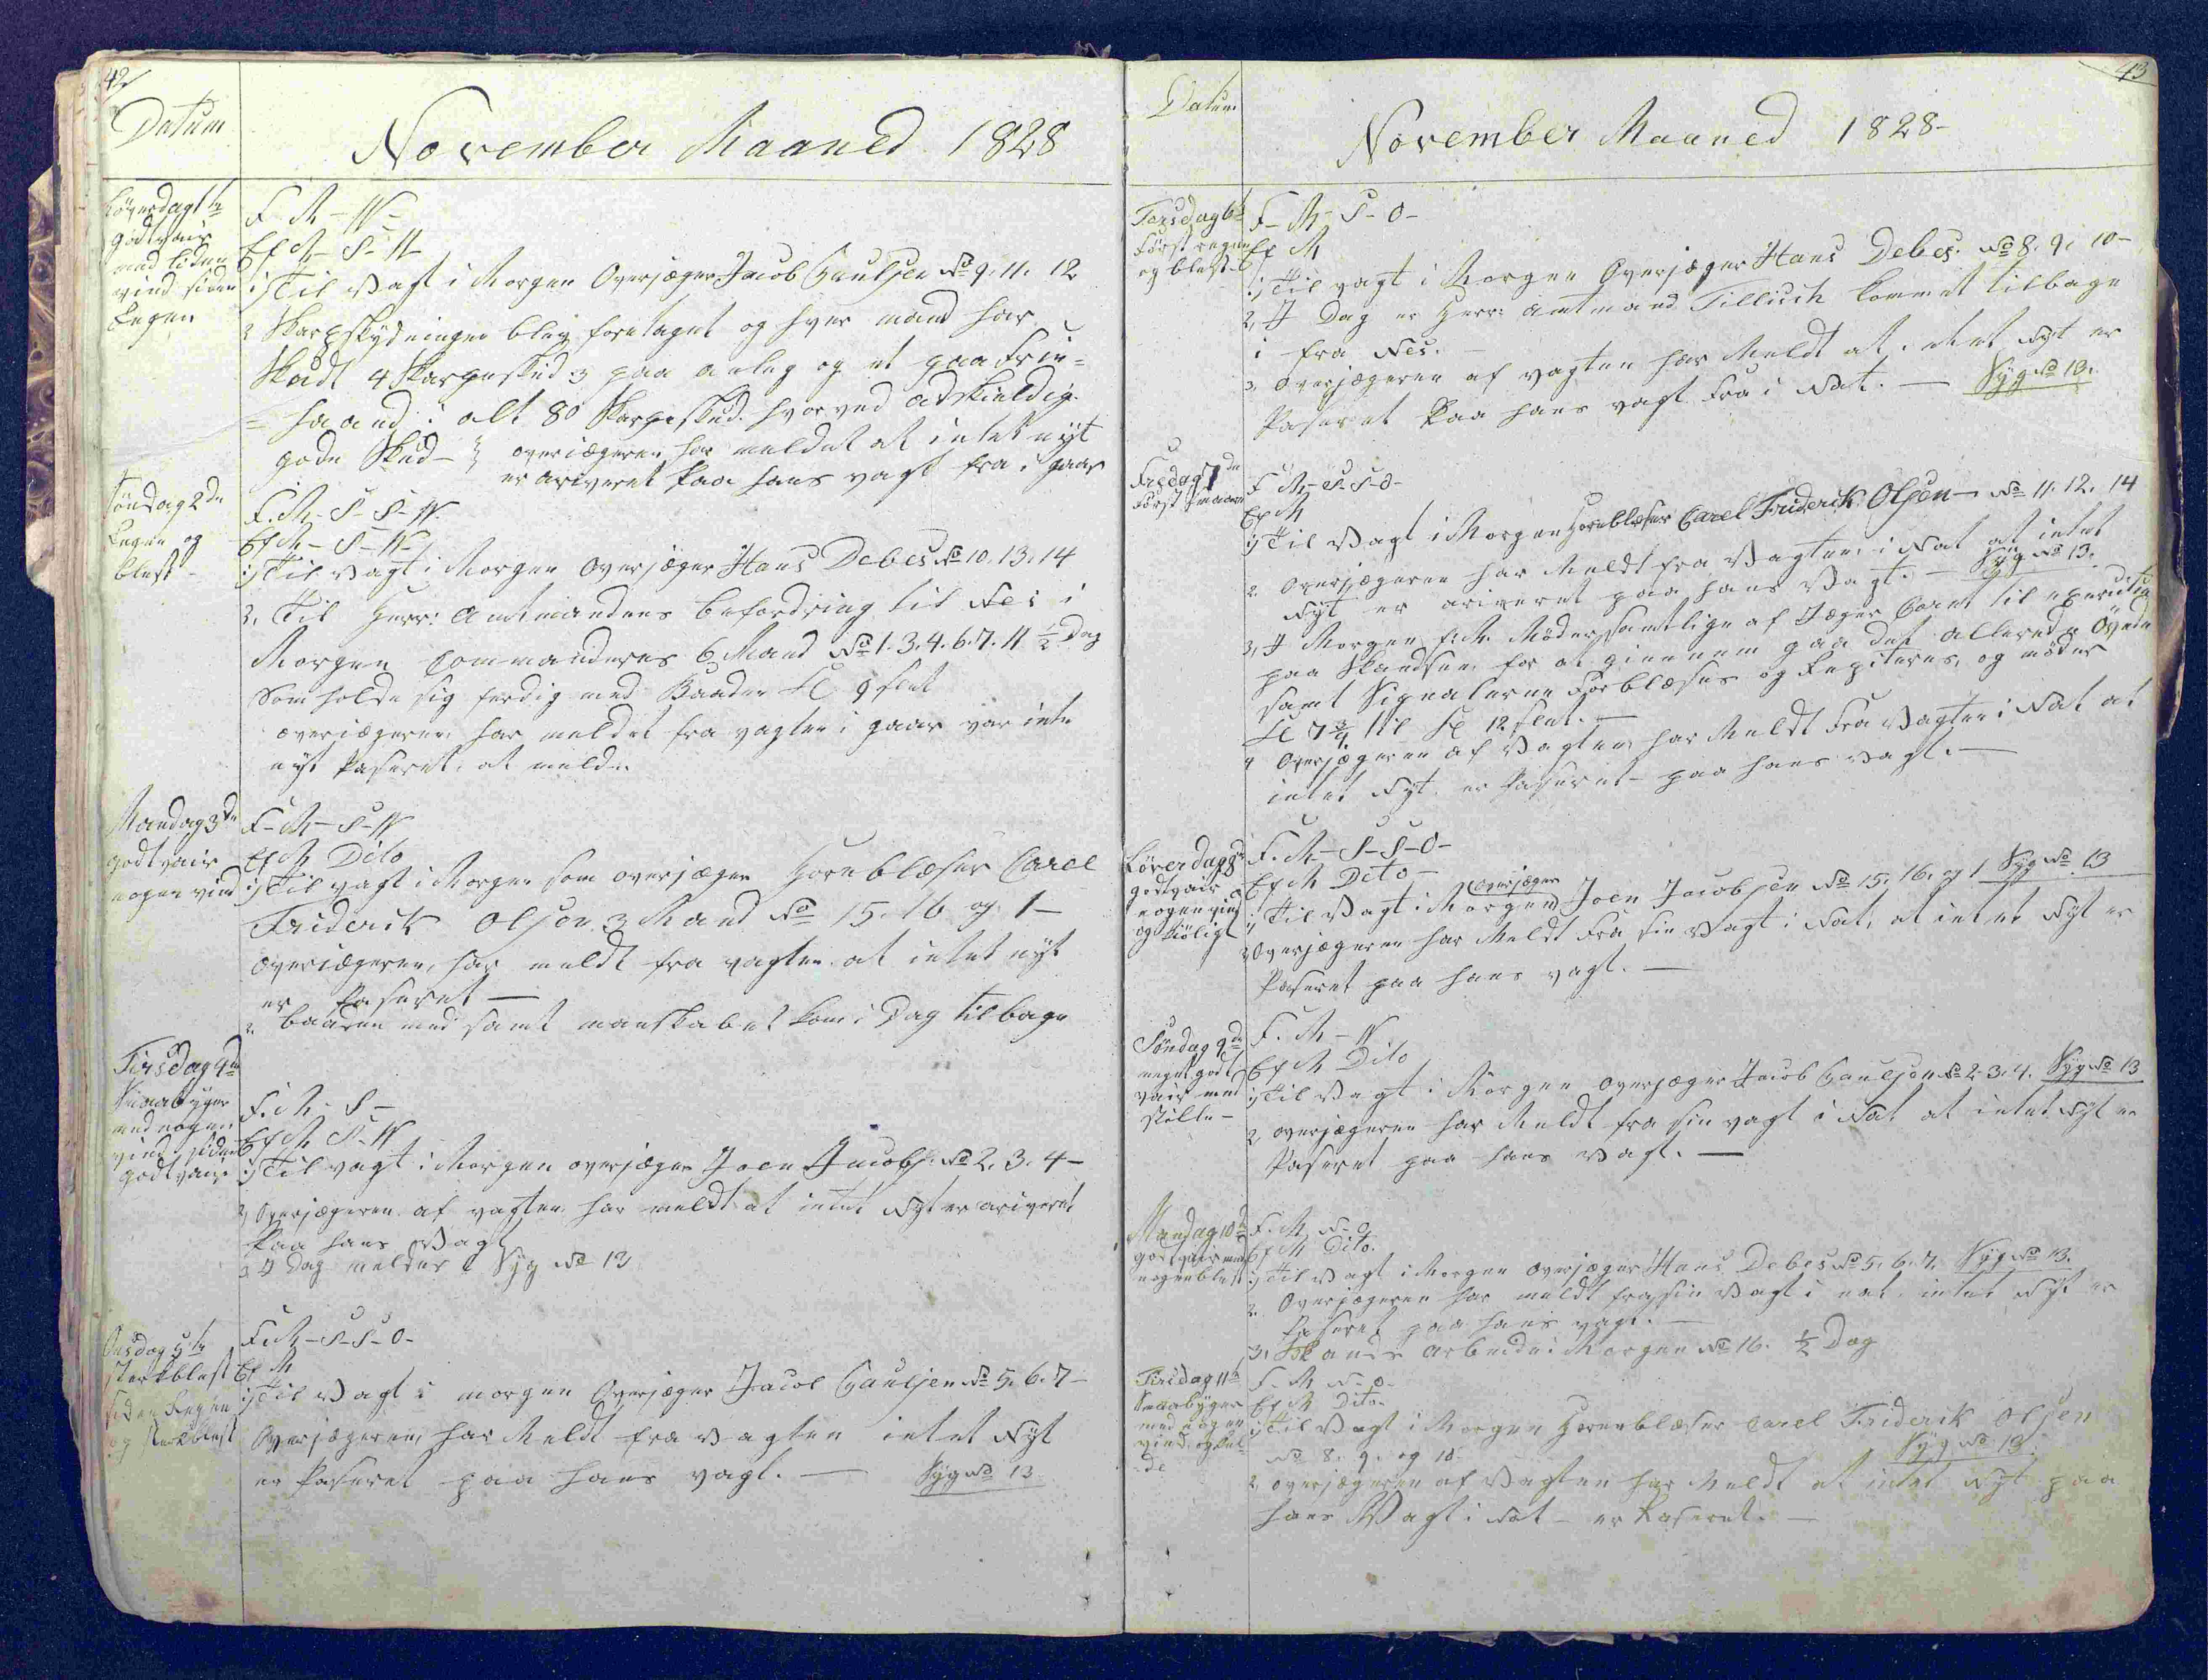 42
Datum
November Maaned 1828
Löverdag 1te
godt vair
med liden
vind siden
Regen
F. M - W -
Ef M - S - W
1) Til Vagt i Morgen Overjæger Jacob Paulsen No 9. 11. 12
2 Skarpskydningen blev foretaget og hver mand har
Skudt 4 Skarpeskud 3 paa anleg og et paa frie=
= haand i alt 80 Skarpeskud hvorved adskieldig
gode Skud - 3 overjægeren har meldet at intet nyt
er ariveret paa hans vagt fra i gaar
Söndag 2de
Regen og
blest -
F. M - S - S - W.
Ef M - S - W -
1) Til Vagt i Morgen Overjæger Hans Debes No 10. 13. 14
2, Til Herr: Amtmandens befordring til Nes i
Morgen Commanderes 6 Mand No 1. 3. 4. 6. 7. 11 ½ Dag
Som holde sig ferdig med Baaden Kl 9 slet
overjægeren har meldet fra vagten i gaar var inte
nyt Paseret at melde
Mandag 3de
godt vair
nogen vind
F - M - S - W
Ef M Dito
1) Til vagt i Morgen som overjæger Hornblæser Carel
Friderick Olsen 3 Mand No 15. 16 og 1 -
Overjægeren har meldt fra vagten at intet nyt
er Paseret -
2. baaden med samt manskabet kom i Dag tilbage
Tirsdag 4de
Smaabyger
med nogen
vind siden
godt vair
F. M - S -
Ef M S - W
1) Til vagt i Morgen overjæger Joen Jacobs: No 2. 3. 4 -
2, Overjægeren af vagten har meldt at intet Nyt er ariveret
Paa hans Vagt
3 I Dag meldes Syg No 13
Onsdag 5te
sterk blest
siden Regen
og sterk blest
F. M - S - S - O -
Ef M
1) Til Vagt i morgen Overjæger Jacob Paulsen No 5. 6. 7 -
Overjægeren har Meldt fra Vagten intet Nyt
er Paseret paa hans vagt. - Syg No 13
43
Datum
November Maaned 1828 -
Torsdag 6te
först regen
og blest -
F - M - S - O -
Ef M
1) Til vagt i Morgen Overjæger Hans Debes. No 8. 9. 10 -
2, I Dag er Herr: Amtmand Tillisch kommet tilbage
i fra Nes. -
3, Overjægeren af vagten har Meldt at intet Nyt er
Paseret Paa hans vagt fra i Nat. - Syg No 13.
Fredag 7de
Först
F M - S - S - O -
Ef M
1) Til Vagt i Morgen Hornblæser Carel Friderick Olsen - No 11. 12. 14
2. Overjægeren har Meldt fra Vagten i Nat at intet
Nyt er ariveret paa hans Vagt. - Syg No 13.
3, I Morgen f. M. Möder samtlige af Jæger Coret til
paa Skandsen for at giennem gaa det allerede Övede
samt Signalerne Forblæses og Repiteres, og möder
Kl 7 ¾ til Kl 12 slet. -
4 Overjægeren af Vagten har Meldt fra Vagten i Nat at
intet Nyt. er Paseret - paa hans vagt. -
Löverdag 8de
godt vair
nogen vind
og kiöligt
F. M - S - S - O -
Ef M Dito -
1) Til Vagt i Morgen Overjæger Joen Jacobsen No 15. 16. og 1 Syg No 13
2 Overjægeren har Meldt fra sin Vagt i Nat, at intet Nyt er
Paseret paa hans vagt. -
Söndag 9de
meget godt
vair med
stille -
F. M - W
Ef M Dito
1) Til Vagt i Morgen Overjæger Jacob Paulsen No 2. 3. 4. Syg No 13
2 overjægeren har Meldt fra sin vagt i Nat at intet Nyt er
Paseret paa hans Vagt. -
Mandag 10de
godt vair med
nogen blest
F. M N - O
Ef M Dito.
1) Til Vagt i Morgen Overjæger Hans Debes No 5. 6. 7. Syg No 13.
2. Overjægeren har meldt fra sin Vagt i nat. intet Nyt er
Paseret paa hans vagt. -
3, Skands arbeide i Morgen No 16. ½ Dag
Tirsdag 11te
Smaabyger
med nogen
vind og kul-
de
F. M N - O -
Ef M Dito -
1) Til Vagt i Morgen Hornblæser Carel Friderick Olsen
No 8. 9. og 10. Syg No 13.
2, overjægeren af Vagten har Meldt at intet Nyt paa
hans Vagt i Nat - er Paseret. -